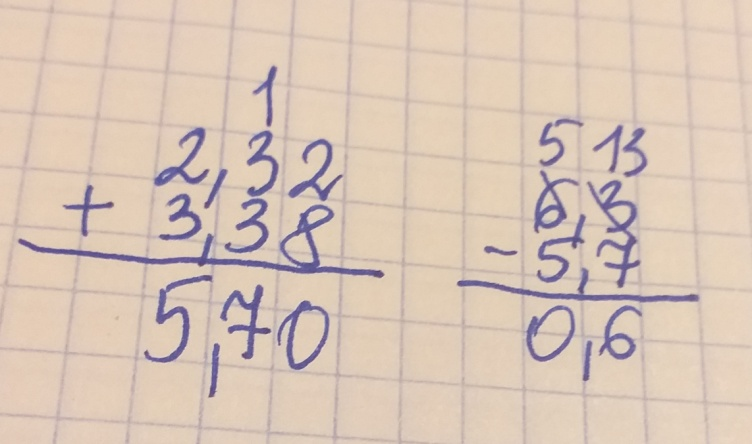 1
2,32
+ 3,38
5,70
5 13
6,3
- 5,7
0,6